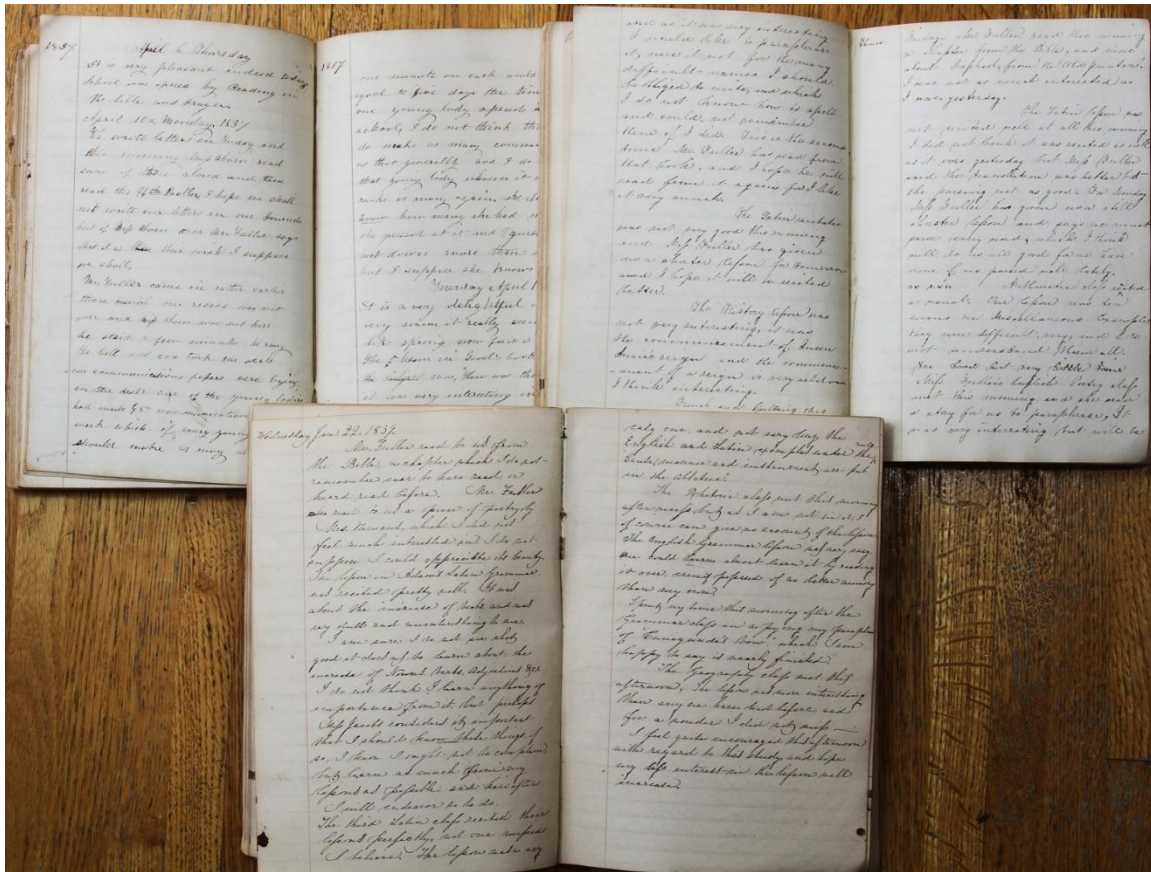 1837
April 6 Thursday
It is very pleasant indeed today
School was opened by Reading in
the bible and Prayer.
April 10th, Monday, 1837
We wrote letters on Friday and
this morning Miss Aborn read
some of them aloud and then
read the Psalm, I hope we shall
not write our letters in our Journals
but if Miss Aborn or Mr. Fuller says
that it is this week I suppose
we shall,
Mr. Fuller came in rather earlier
than usual our recess was not
over and Miss Aborn was not here
he staid a few minutes he rang
the bell and we took our seats
communications papers were lying
on the desk one of the young ladies
had made 95 communications
week which if every young
should make as many
1837
one minute on each would
equal to five days the time
one young lady spends
school, I do not think the
do make as many commun
as that generally and I do
that young lady whoever it
make as many again.
know how many she had
she guessed at it and I guess
not down more than
but I suppose she knows
Tuesday April 1
It is a very delightful
very warm it really
like spring now for it
The lesson in Good's book
the subject was, There was
it was very interesting
and as it was very interesting
I would like to paraphrase
it, were it not for the many
difficult names I should
be obliged to write, and which
I do not know how to spell
and could not remember
them if I did. This is the second
time Mr. Fuller has read from
that book, and I hope he will
read from it again for I like
it very much.
The Latin recitation
was not very good this morning
and Miss Fuller has given
us a shorter lesson for tomorrow
and I hope it will be recited
better.
The History lesson was
not very interesting, it was
the commencement of Queen
Annie's reign and the commence-
-ment of a reign is very seldom
I think interesting.
Friday Mr. Fuller read this morning
a chapter from the Bible, and
about Raphael, from the Old painters.
I was not as much interested as
I was yesterday.
The Latin lesson was
not recited well at all this morning
I did not think it was recited as well
as it was yesterday but Miss Fuller
said the translation was better but
the parsing not as good. For Monday
Miss Fuller has given us a still
shorter lesson and says we must
parse every word, which I think
will do us all good for we have
none of us parsed well lately.
Arithmetic class recited
as usual. Our lesson was ten
sums in Miscellaneous Examples
they were difficult, very, and I do
not understand them all.
Miss Fuller's English Poetry class
met this morning and she read
a story for us to paraphrase, It
was very interesting but will be
Wednesday Jan. 22. 1839.
Mr. Fuller read to us from
the Bible, a chapter which I do not
remember ever to have read, or
heard read before. Mr Fuller
also read to us a piece of poetry by
Mrs. Hemans, which I did not
feel much interested in, I do not
suppose I could appreciate its beauty
The lesson in Adams Latin Grammar
was recited pretty well. It was
about the increase of verbs and was
very dull and uninteresting to me.
I am sure I do not see what
good it does us to learn about the
increase of Nouns Verbs, Adjectives &c
I do not think I learn anything of
importance from it, but perhaps
Miss Jacobs considers it important
that I should know these things, if
so, I know I ought not to complain
but learn as much from my
lessons as possible and hereafter
I will endeavor so to do.
The third Latin class recited their
lessons perfectly, not one missed
I believe. The lesson was a very
easy one, and not very long, the
English and Latin examples under the rule,
Cause, manner and instrument are put
in the ablative.
The Rhetoric class met this morning
after recess but as I am not in it I
of course can give no account of the lesson
The English Grammar lesson was very easy
one could almost learn it by reading
it over even if possessed of no better memory
than my own.
I spent my time this morning after the
Grammar class in copying my paraphrase
of "Cunnyunde's Vow," which I am
happy to say is nearly finished.
The Geography class met this
afternoon, The lesson was more interesting
than any we have had before and
for a wonder I did not miss —
I feel quite encouraged this afternoon
with regard to this study and hope
my interest in the lesson will
increase.